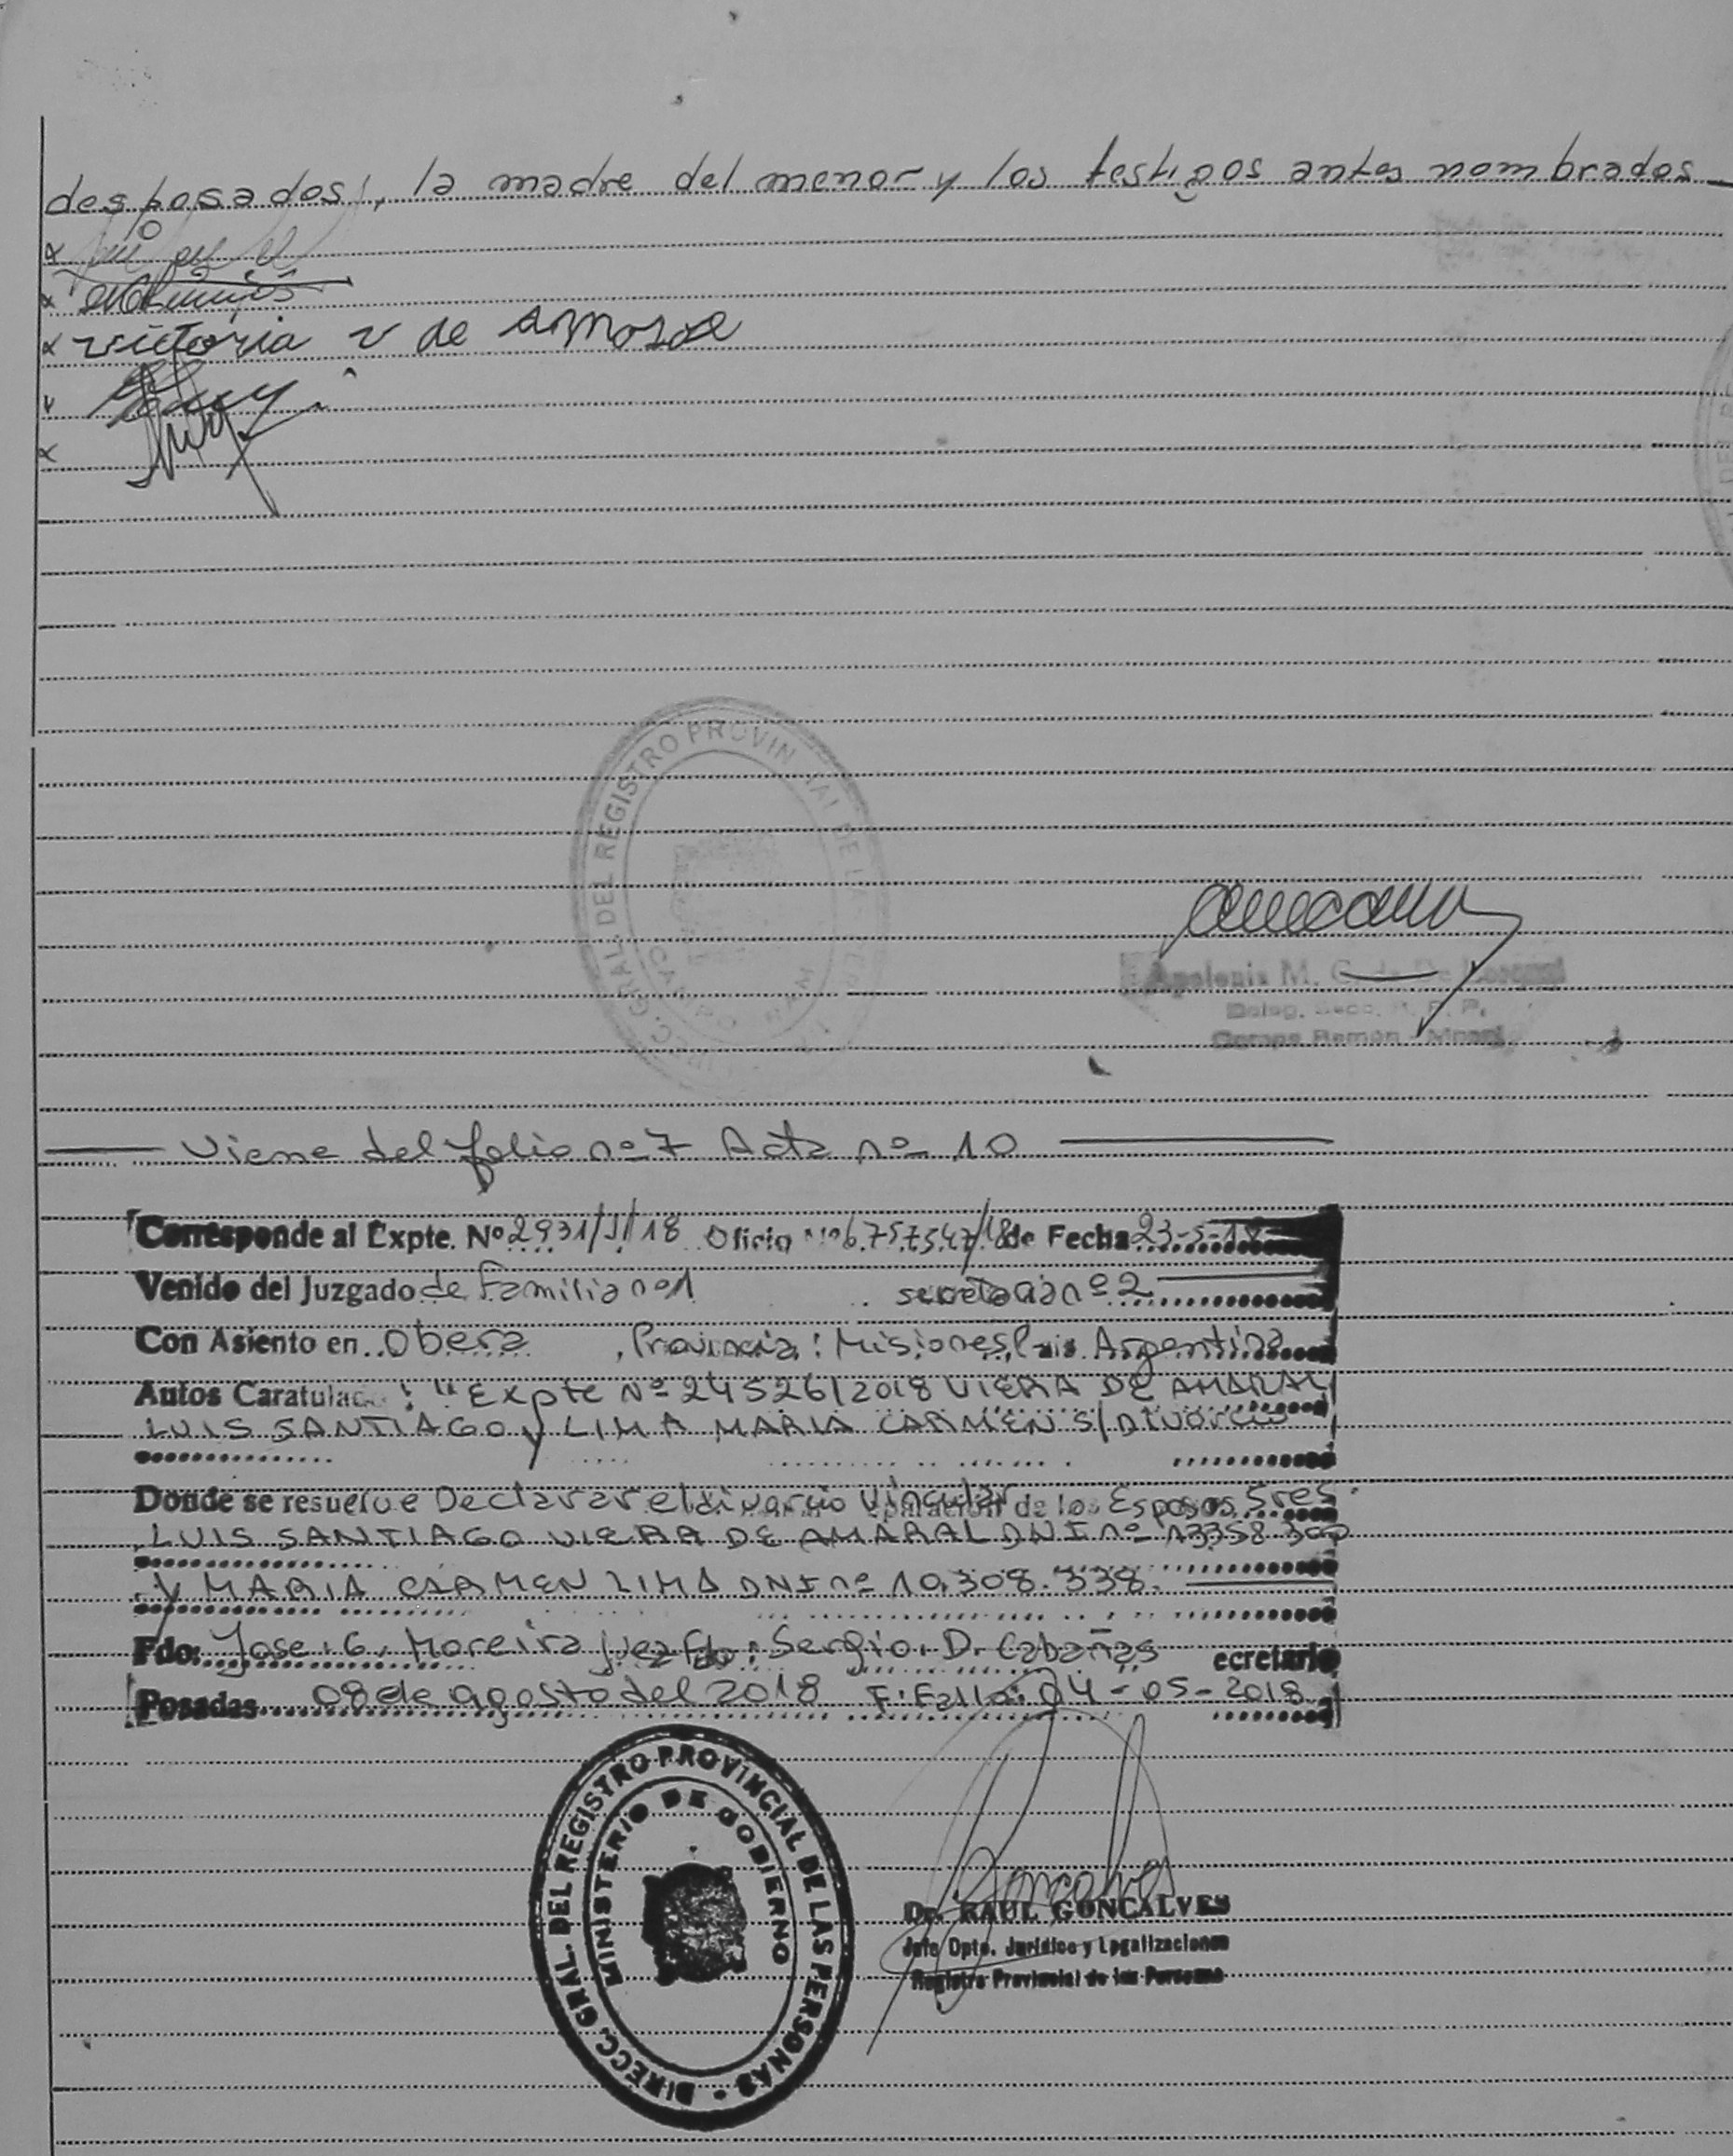 desposados, la madre del menor y los testigos antes nombrados
victoria v de
DIRECC. GRAL. DEL REGISTRO PROVINCIAL DE LAS
Apolonia M.
Deleg. Secc. R. P. P.
Campo Ramón - Mnes
Viene del folio nº 7 Acta nº 10
Corresponde al Expte. Nº 2931/J/18 Oficio Nº 6.757.547/18 de Fecha 23-5-18
Venido del Juzgado de Familia nº 1 secretaria nº 2
Con Asiento en Obera, Provincia: Misiones, Pais Argentina
Autos Caratulado: "Expte Nº 24526/2018 VIERA DE AMARAL
LUIS SANTIAGO y LIMA MARIA CARMEN S/Divorcio
Donde se resuelve Declarar el divorcio Vincular de los Esposos Sres.
LUIS SANTIAGO VIERA DE AMARAL DNI nº 13358
y MARIA CARMEN LIMA DNI nº 10.308.338.
Fdo: Jose. G. Moreira Juez Fdo: Sergio. D. Cabañas ecretario
Posadas 08 de agosto del 2018 F. Fallo: 04-05-2018
DIRECC. GRAL. DEL REGISTRO PROVINCIAL DE LAS PERSONAS
MINISTERIO DE GOBIERNO
Dr. RAUL GONCALVES
Jefe Dpto. Jurídico y Legalizaciones
Registro Provincial de las Personas